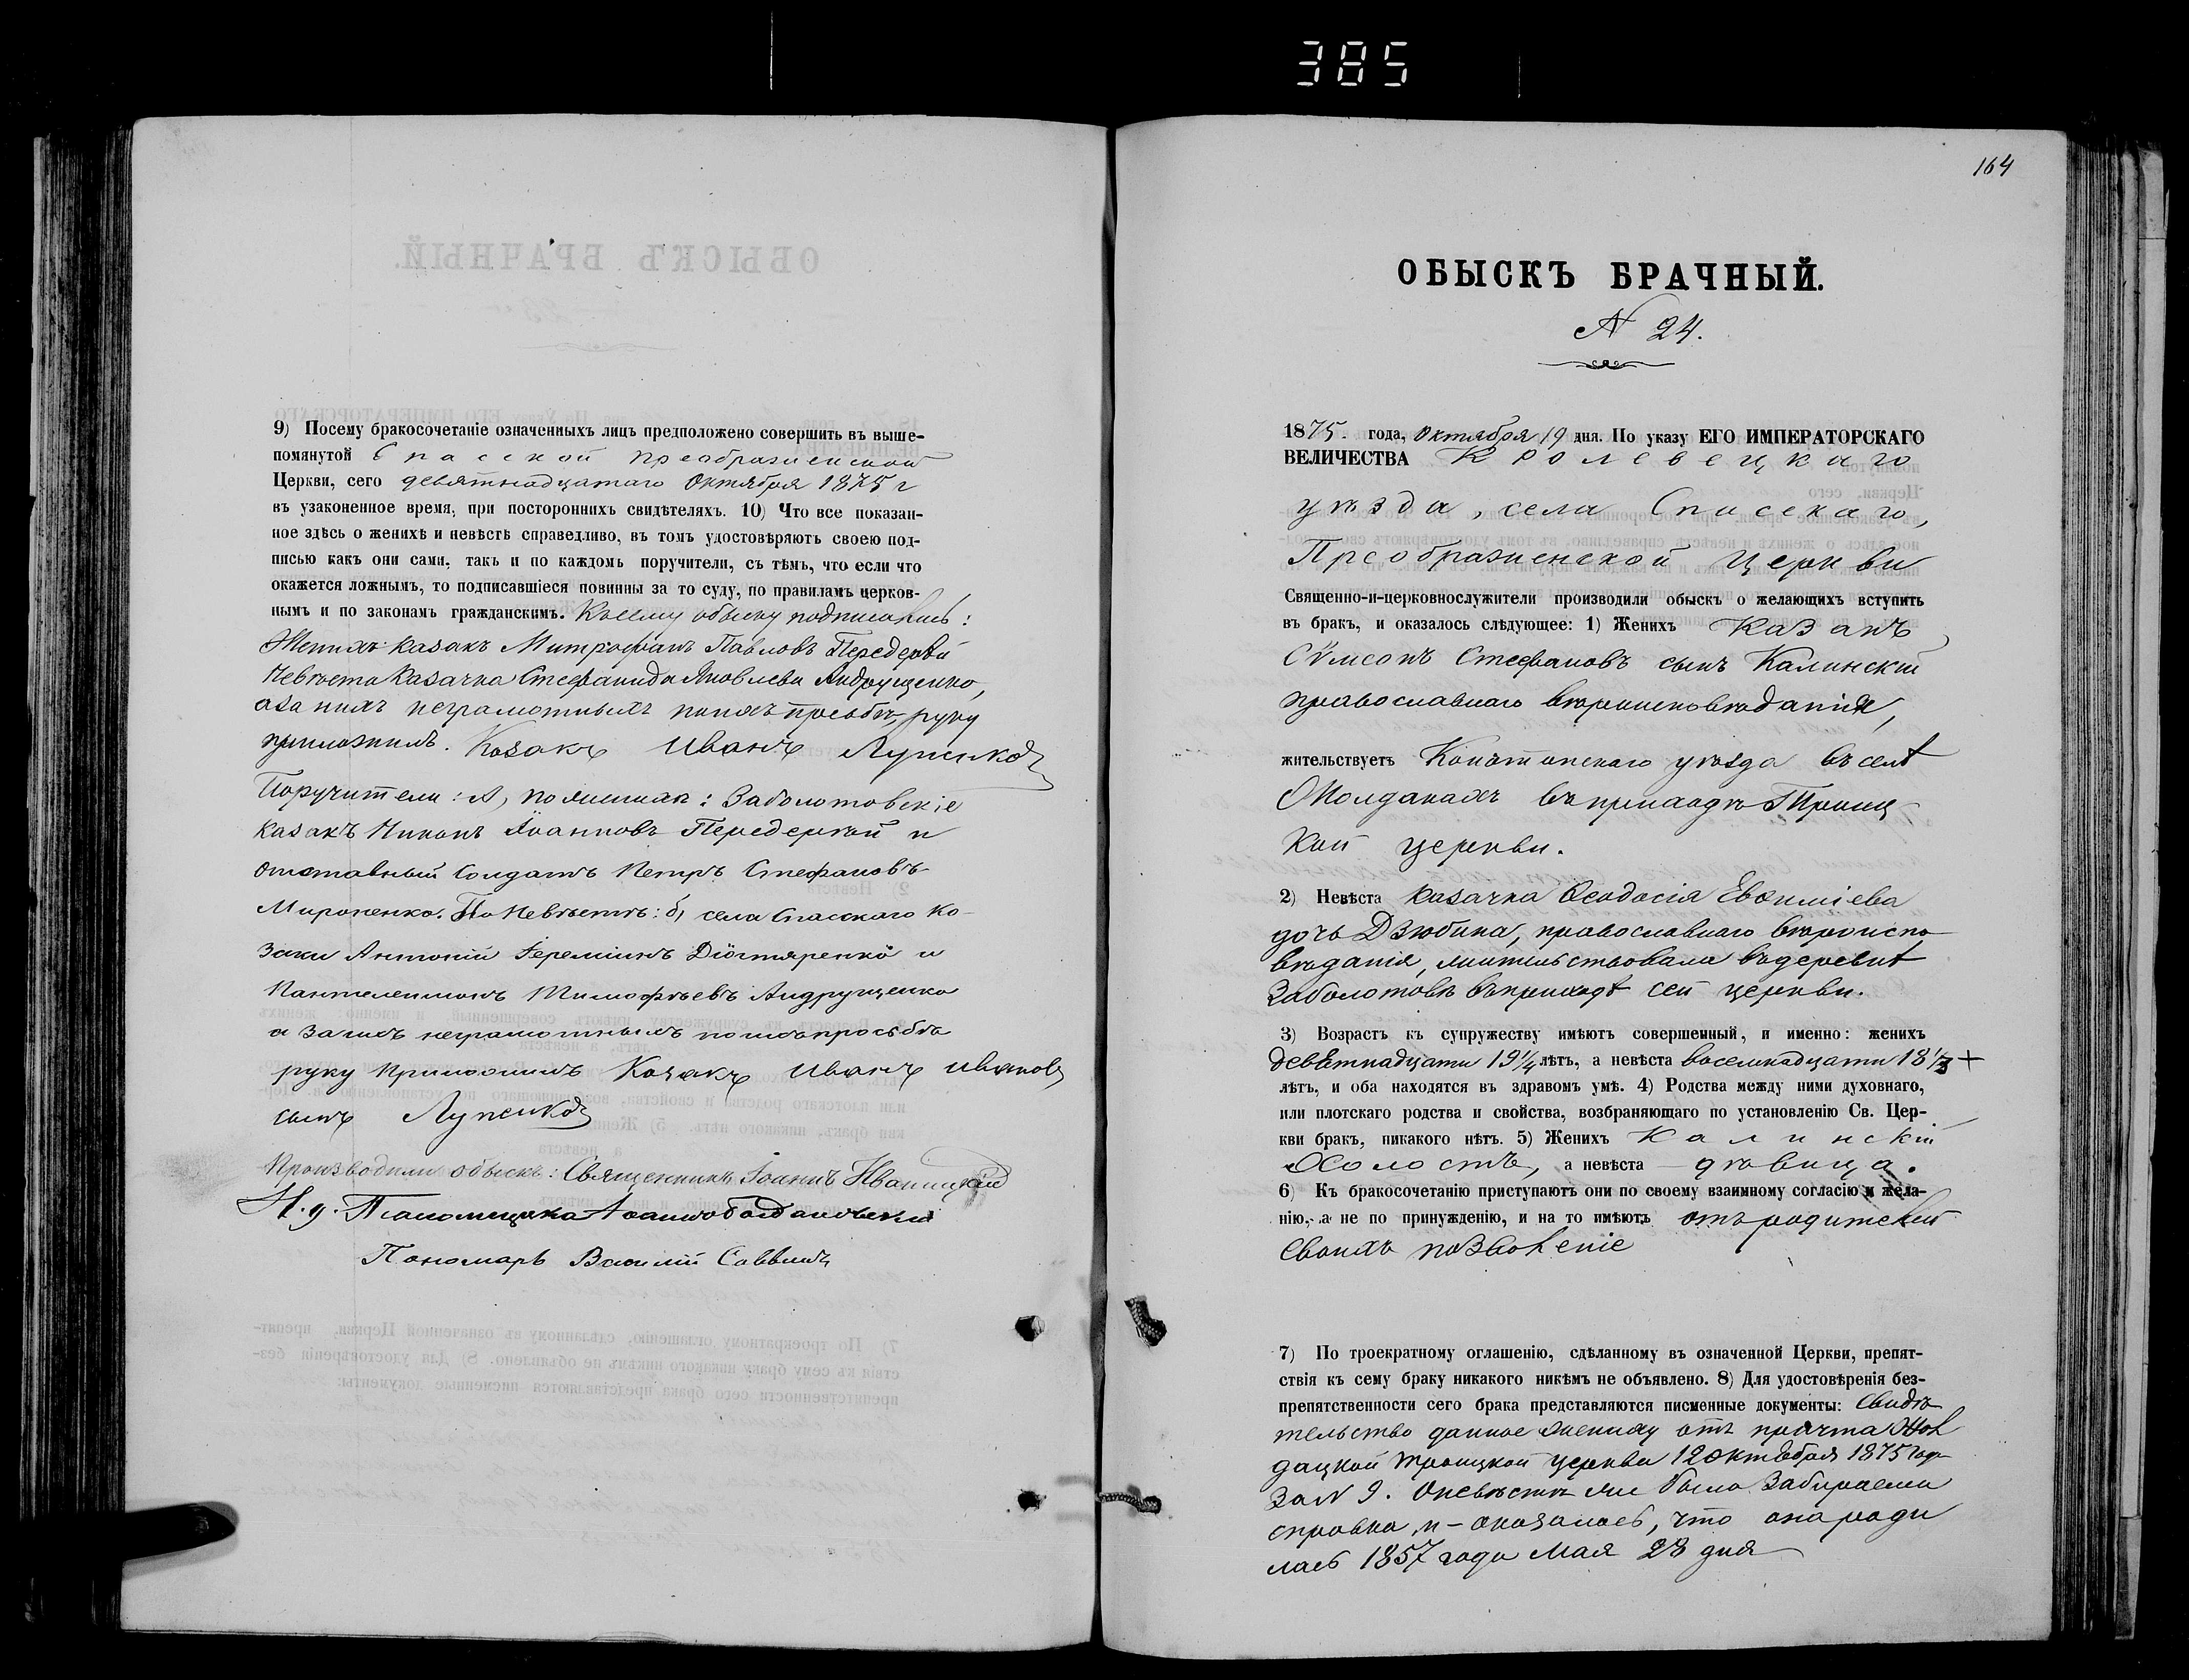 385
9) Посему бракосочетаніе означенныхъ лицъ предположено совершить въ выше-
помянутой Спасской Преображенской
Церкви, сего девятнадцатаго Октября 1875 г
въ узаконенное время, при постороннихъ свидѣтеляхъ. 10) Что все показан-
ное здѣсь о женихѣ и невѣстѣ справедливо, въ томъ удостовѣряютъ своею под-
писью какъ они сами, такъ и по каждомъ поручители, съ тѣмъ, что если что
окажется ложнымъ, то подписавшіеся повинны за то суду, по правиламъ церков-
нымъ и по законамъ гражданскимъ. Къ сему обыску подписались:
Женихъ казакъ Митрофанъ Павловъ Передерѣй
Невѣста Казачка Стефанида Яковлева Андрущенко,
а за нихъ неграмотныхъ по ихъ просьбѣ, руку
приложилъ. Козакъ Иванъ Лупенко
Поручители: А, по женихѣ: Заболотовскіе
казакъ Никонъ Іоанновъ Передерѣй и
отставный Солдатъ Петръ Стефановъ
Мироненко. По Невѣстѣ: б, села Спасскаго Ко-
заки Антоній Іереміинъ Дігтяренко и
Пантелеимонъ Тимофѣевъ Андрущенко
а за нихъ неграмотныхъ по ихъ просьбѣ
руку приложилъ Козакъ Иванъ Ивановъ
сынъ Лупенко
Производили обыскъ: Священникъ Іоаннъ Иваницкій
И. д. Псаломщика
Пономарь Василій Саввичъ
164
ОБЫСКЪ БРАЧНЫЙ.
N 24.
1875. года, Октября 19 дня. По указу ЕГО ИМПЕРАТОРСКАГО
ВЕЛИЧЕСТВА Кролевецкаго
уѣзда, села Спасскаго,
Преображенской Церкви
Священно-и-церковнослужители производили обыскъ о желающихъ вступить
въ бракъ, и оказалось слѣдующее: 1) Женихъ Казакъ
Сѵмеонъ Стефановъ сынъ Калинскій
православнаго вѣроисповѣданія,
жительствуетъ Конотопскаго уѣзда въ селѣ
Жолдакахъ въ приходѣ Троиц-
кой церкви.
2) Невѣста казачка Ѳеодосія Евѳиміева
дочь Дзюбина, православнаго вѣроиспо-
вѣданія, жительствовала въ деревнѣ
Заболотовѣ въ приходѣ сей церкви.
3) Возрастъ къ супружеству имѣютъ совершенный, и именно: женихъ
девѣтнадцати 19 1/4 лѣтъ, а невѣста восемнадцати 18 1/3 +
лѣтъ, и оба находятся въ здравомъ умѣ. 4) Родства между ними духовнаго,
или плотскаго родства и свойства, возбраняющаго по установленію Св. Цер-
кви бракъ, никакого нѣтъ. 5) Женихъ Калинскій
Холостъ, а невѣста – дѣвица.
6) Къ бракосочетанію приступаютъ они по своему взаимному согласію и жела-
нію, а не по принужденію, и на то имѣютъ отъ родителей
своихъ позволеніе
7) По троекратному оглашенію, сдѣланному въ означенной Церкви, препят-
ствія къ сему браку никакого никѣмъ не объявлено. 8) Для удостовѣренія без-
препятственности сего брака представляются писменные документы: Свидѣ-
тельство данное жениху отъ причта Жол
дацкой Троицкой церкви 12 октября 1875 года
за N 9. О невѣстѣ же была забираема
справка, и – оказалось, что она роди
лась 1857 года Мая 28 дня